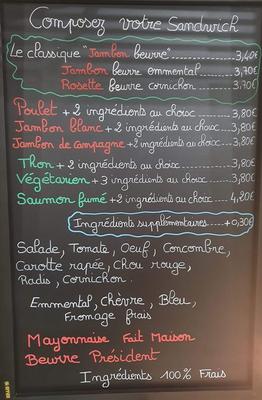 Composez votre Sandwich
Le classique "Jambon beurre" 3,40€
Jambon beurre emmental 3,70€
Rosette beurre cornichon 3,70€
Poulet + 2 ingrédients au choix 3,80€
Jambon blanc + 2 ingrédients au choix 3,80€
Jambon de campagne + 2 ingrédients au choix 3,80€
Thon + 2 ingrédients au choix 3,80€
Végétarien + 3 ingrédients au choix 3,80€
Saumon fumé + 2 ingrédients au choix 4,20€
Ingrédients supplémentaires +0,30€
Salade, Tomate, Oeuf, Concombre,
Carotte rapée, Chou rouge,
Radis, Cornichon.
Emmental, Chèvre, Bleu,
Fromage frais
Mayonnaise Fait Maison
Beurre Président
Ingrédients 100% Frais